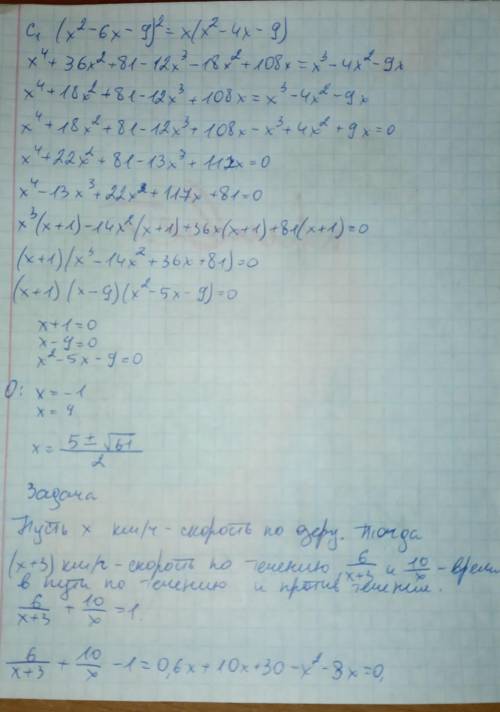 C1 (x²-6x-9)²=x(x²-4x-9)
x⁴+36x²+81-12x³-18x²+108x=x³-4x²-9x
x⁴+18x²+81-12x³+108x=x³-4x²-9x
x⁴+18x²+81-12x³+108x-x³+4x²+9x=0
x⁴+22x²+81-13x³+117x=0
x⁴-13x³+22x²+117x+81=0
x³(x+1)-14x²(x+1)+36x(x+1)+81(x+1)=0
(x+1)(x³-14x²+36x+81)=0
(x+1)(x-9)(x²-5x-9)=0
x+1=0
x-9=0
x²-5x-9=0
О: x=-1
x=9
x=(5±√61)/2
Задача
Пусть x км/ч-скорость по озеру. Тогда
(x+3) км/ч-скорость по течению 6/(x+3) и 10/x-время
в пути по течению и против течения.
6/(x+3)+10/x=1.
6/(x+3)+10/x-1=0,6x+10x+30-x²-3x=0,